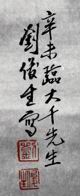 辛未臨大千先生
劉俊生寫